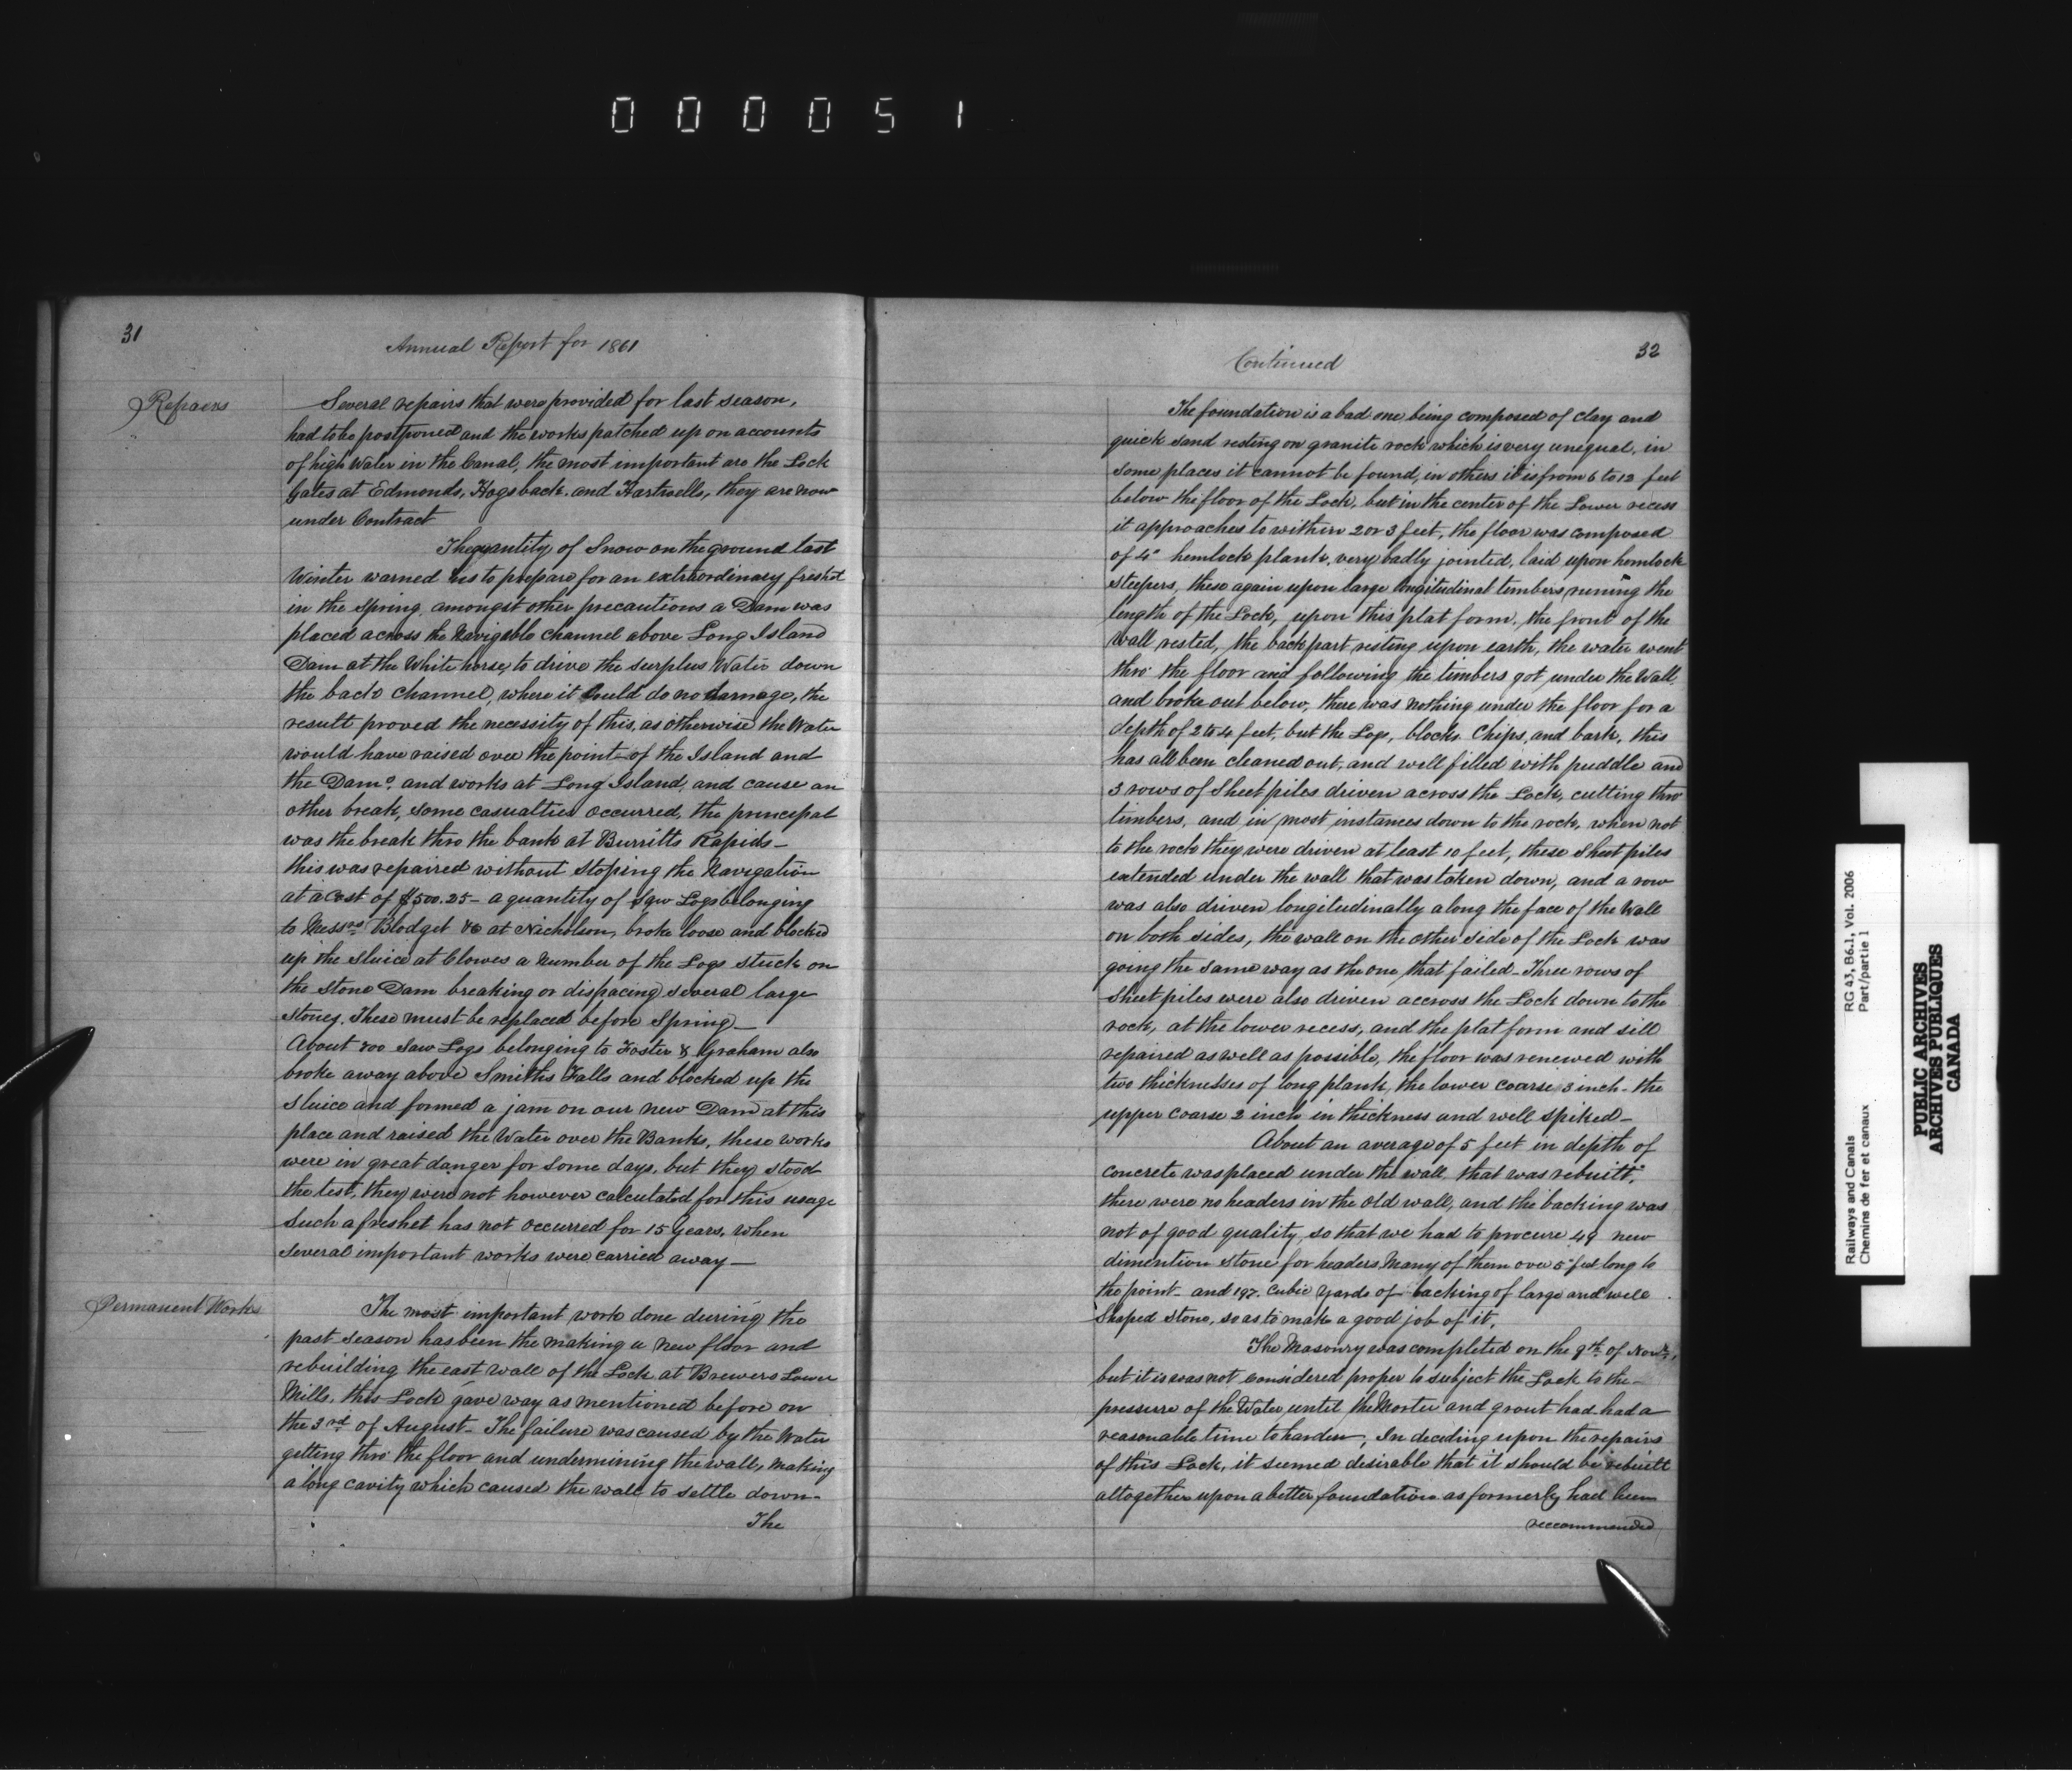 000051
31
Annual Report for 1861
Repairs
Several repairs that were provided for last season,
had to be postponed and the works patched up on accounts
of high Water in the Canal, the most important are the Lock
Gates at Edmonds, Hogsback and Hartwells, they are now
under Contract
The quantity of Snow on the ground last
Winter warned us to prepare for an extraordinary freshet
in the Spring, amongst other precautions a Dam was
placed across the Navigable Channel above Long Island
Dam at the White horse, to drive the surplus Water down
the back channel, where it could do no damage, the
result proved the necessity of this, as otherwise the Water
would have raised over the point of the Island and
the Dams and works at Long Island, and cause an
other break, some casualties occurred, the principal
was the break thro the bank at Burritts Rapids—
this was repaired without stoping the Navigation
at a cost of $500.25– a quantity of Saw Logs belonging
to Messrs Blodget &c at Nicholson, broke loose and blocked
up the sluice at Clowes a number of the Logs stuck on
the stone Dam breaking or dispacing several large
stones. These must be replaced before Spring—
About 800 Saw Logs belonging to Foster & Graham also
broke away above Smiths Falls and blocked up the
Sluice and formed a jam on our new Dam at this
place and raised the Water over the Banks, these works
were in great danger for some days, but they stood
the test, they were not however calculated for this usage
Such a freshet has not occurred for 15 years, when
several important works were carried away—
Permanent Works
The most important work done during the
past season has been the making a new floor and
rebuilding the east wall of the Lock at Brewers Lower
Mills, this Lock gave way as mentioned before on
the 3rd of August– The failure was caused by the Water
getting thro' the floor and undermining the wall, making
a long cavity which caused the wall to settle down–
The
Continued
32
The foundation is a bad one being composed of clay and
quick sand resting on granite rock which is very unequal, in
some places it cannot be found, in others it is from 6 to 12 feet
below the floor of the Lock, but in the center of the Lower recess
it approaches to within 2 or 3 feet, the floor was composed
of 4" hemlock plank, very badly jointed, laid upon hemlock
sleepers, these again upon large longitudinal timbers runing the
length of the Lock, upon this plat form, the front of the
Wall rested, the back part resting upon earth, the water went
thro' the floor and following the timbers got under the Wall,
and broke out below, there was nothing under the floor for a
depth of 2 to 4 feet, but the Logs, blocks Chips, and bark, this
has all been cleaned out, and well filled with puddle and
3 rows of Sheet piles driven across the Lock, cutting thro'
timbers, and in most instances down to the rock, when not
to the rock they were driven at least 10 feet, these Sheet piles
extended under the wall that was taken down, and a row
was also driven longitudinally along the face of the Wall
on both sides, the wall on the other side of the Lock was
going the same way as the one that failed– Three rows of
Sheet piles were also driven accross the Lock down to the
rock, at the lower recess, and the plat form and sill
repaired as well as possible, the floor was renewed with
two thicknesses of long plank, the lower coarse 3 inch– the
upper coarse 2 inch in thickness and well spiked—
About an average of 5 feet in depth of
concrete was placed under the wall that was rebuilt,
there were no headers in the old wall, and the backing was
not of good quality, so that we had to procure 49 new
dimention stone for headers Many of them over 5 feet long to
the point– and 197 Cubic Yards of backing of large and well
Shaped Stone, so as to make a good job of it,
The Masonry was completed on the 9th of Novr,
but it is was not considered proper to subject the Lock to the–
pressure of the Water until the Morter and grout had had a
reasonable time to harden; In deciding upon the repairs
of this Lock, it seemed desirable that it should be rebuilt
altogether upon a better foundation as formerly had been
reccommended
Railways and Canals
Chemins de fer et canaux
RG 43, B6.1, Vol. 2006
Part/partie 1
PUBLIC ARCHIVES
ARCHIVES PUBLIQUES
CANADA